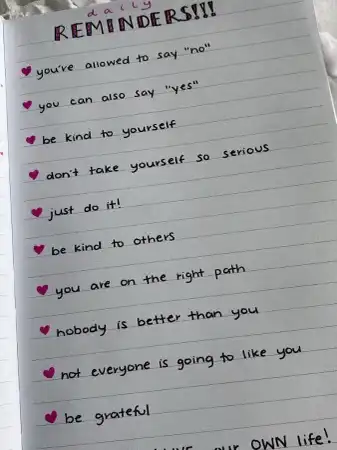 daily
REMINDERS!!!
you've allowed to say "no"
you can also say "yes"
be kind to yourself
don't take yourself so serious
just do it!
be kind to others
you are on the right path
nobody is better than you
not everyone is going to like you
be grateful
OWN life!